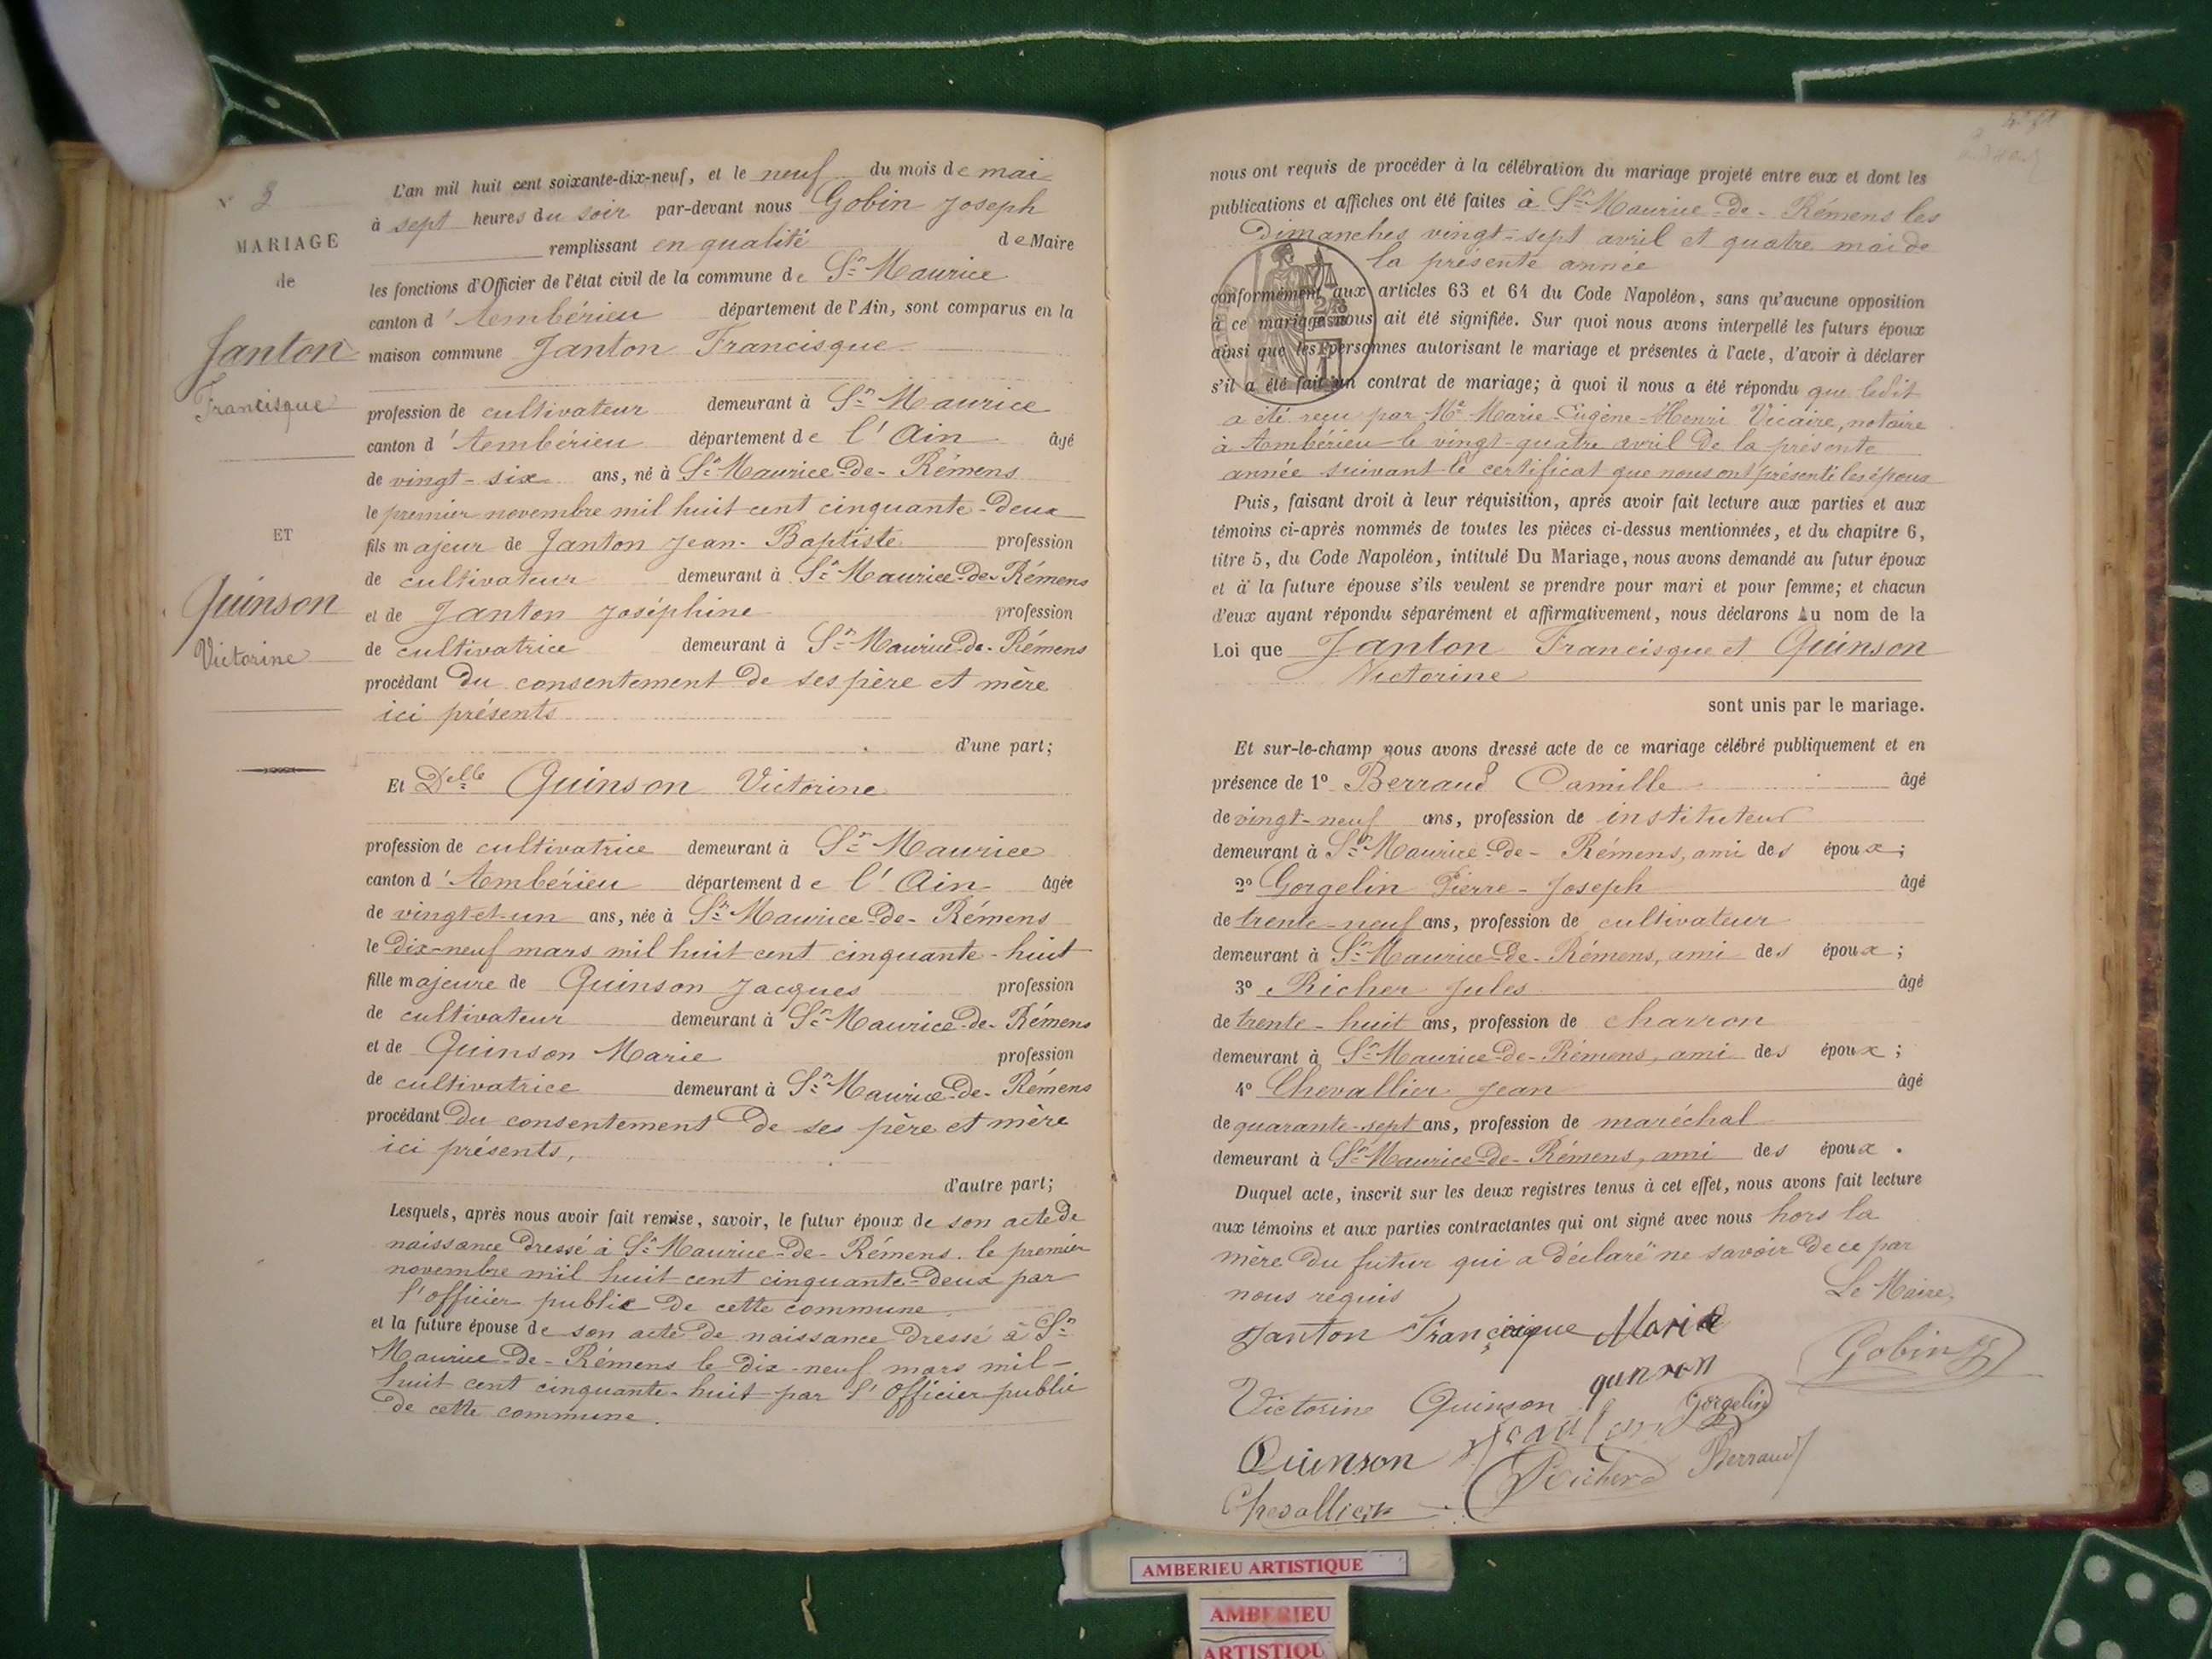 N° 3
MARIAGE
de
Janton
Francisque
ET
Quinson
Victorine
L'an mil huit cent soixante-dix-neuf, et le neuf du mois de mai
à sept heures du soir par-devant nous Gobin Joseph
remplissant en qualité de Maire
les fonctions d'Officier de l'état civil de la commune de St Maurice
canton d'Ambérieu département de l'Ain, sont comparus en la
maison commune Janton Francisque
profession de cultivateur demeurant à St Maurice
canton d'Ambérieu département de l'Ain âgé
de vingt-six ans, né à St Maurice-de-Rémens
le premier novembre mil huit cent cinquante-deux
fils majeur de Janton Jean-Baptiste profession
de cultivateur demeurant à St Maurice-de-Rémens
et de Janton Joséphine profession
de cultivatrice demeurant à St Maurice-de-Rémens
procédant du consentement de ses père et mère
ici présents
d'une part;
Et Delle Quinson Victorine
profession de cultivatrice demeurant à St Maurice
canton d'Ambérieu département de l'Ain âgée
de vingt-et-un ans, née à St Maurice-de-Rémens
le dix-neuf mars mil huit cent cinquante-huit
fille majeure de Quinson Jacques profession
de cultivateur demeurant à St Maurice-de-Rémens
et de Quinson Marie profession
de cultivatrice demeurant à St Maurice-de-Rémens
procédant du consentement de ses père et mère
ici présents,
d'autre part;
Lesquels, après nous avoir fait remise, savoir, le futur époux de son acte de
naissance dressé à St Maurice-de-Rémens le premier
novembre mil huit cent cinquante-deux par
l'officier public de cette commune
et la future épouse de son acte de naissance dressé à St
Maurice-de-Rémens le dix-neuf mars mil-
huit cent cinquante-huit par l'Officier public
de cette commune.
nous ont requis de procéder à la célébration du mariage projeté entre eux et dont les
publications et affiches ont été faites à St Maurice-de-Rémens les
Dimanches vingt-sept avril et quatre mai de
la présente année
conformément aux articles 63 et 64 du Code Napoléon, sans qu'aucune opposition
à ce mariage nous ait été signifiée. Sur quoi nous avons interpellé les futurs époux
ainsi que les personnes autorisant le mariage et présentes à l'acte, d'avoir à déclarer
s'il a été fait un contrat de mariage; à quoi il nous a été répondu que ledit
a été reçu par Me Marie-Eugène-Henri Vicaire, notaire
à Ambérieu le vingt-quatre avril de la présente
année suivant le certificat que nous ont présenté les époux
Puis, faisant droit à leur réquisition, après avoir fait lecture aux parties et aux
témoins ci-après nommés de toutes les pièces ci-dessus mentionnées, et du chapitre 6,
titre 5, du Code Napoléon, intitulé Du Mariage, nous avons demandé au futur époux
et à la future épouse s'ils veulent se prendre pour mari et pour femme; et chacun
d'eux ayant répondu séparément et affirmativement, nous déclarons Au nom de la
Loi que Janton Francisque et Quinson
Victorine
sont unis par le mariage.
Et sur-le-champ nous avons dressé acte de ce mariage célébré publiquement et en
présence de 1° Berraud Camille âgé
de vingt-neuf ans, profession de instituteur
demeurant à St Maurice-de-Rémens, ami des époux;
2° Gorgelin Pierre-Joseph âgé
de trente-neuf ans, profession de cultivateur
demeurant à St Maurice-de-Rémens, ami des époux;
3° Richer Jules âgé
de trente-huit ans, profession de charron
demeurant à St Maurice-de-Rémens, ami des époux;
4° Chevallier Jean âgé
de quarante-sept ans, profession de maréchal
demeurant à St Maurice-de-Rémens, ami des époux.
Duquel acte, inscrit sur les deux registres tenus à cet effet, nous avons fait lecture
aux témoins et aux parties contractantes qui ont signé avec nous hors la
mère du futur qui a déclaré ne savoir de ce par
nous requis
Le Maire,
Janton Francisque Marie
Gobin
Victorine Quinson
Gorgelin
Quinson
Richer Berraud
Chevallier
AMBERIEU ARTISTIQUE
AMBERIEU
ARTISTIQU